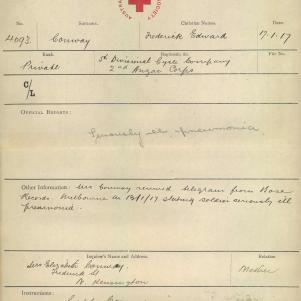 SOCIETY
AUSTRA
No.
Surname.
Christian Names.
Date.
4093.
Conway
Frederick Edward
17.1.17
Rank.
Regiment, &c.
File No.
Private
5th Divisional Cycle Company
2nd Anzac Corps
C/L
OFFICIAL REPORTS:
Seriously ill, pneumonia
Other Information: Mrs Conway received telegram from Base
Records. Melbourne on 13/1/17 stating soldier seriously ill
pneumonia.
Inquirer's Name and Address.
Relation.
Mrs Elizabeth Conway.
Frederick St
N. Kensington
Mother
Instructions: